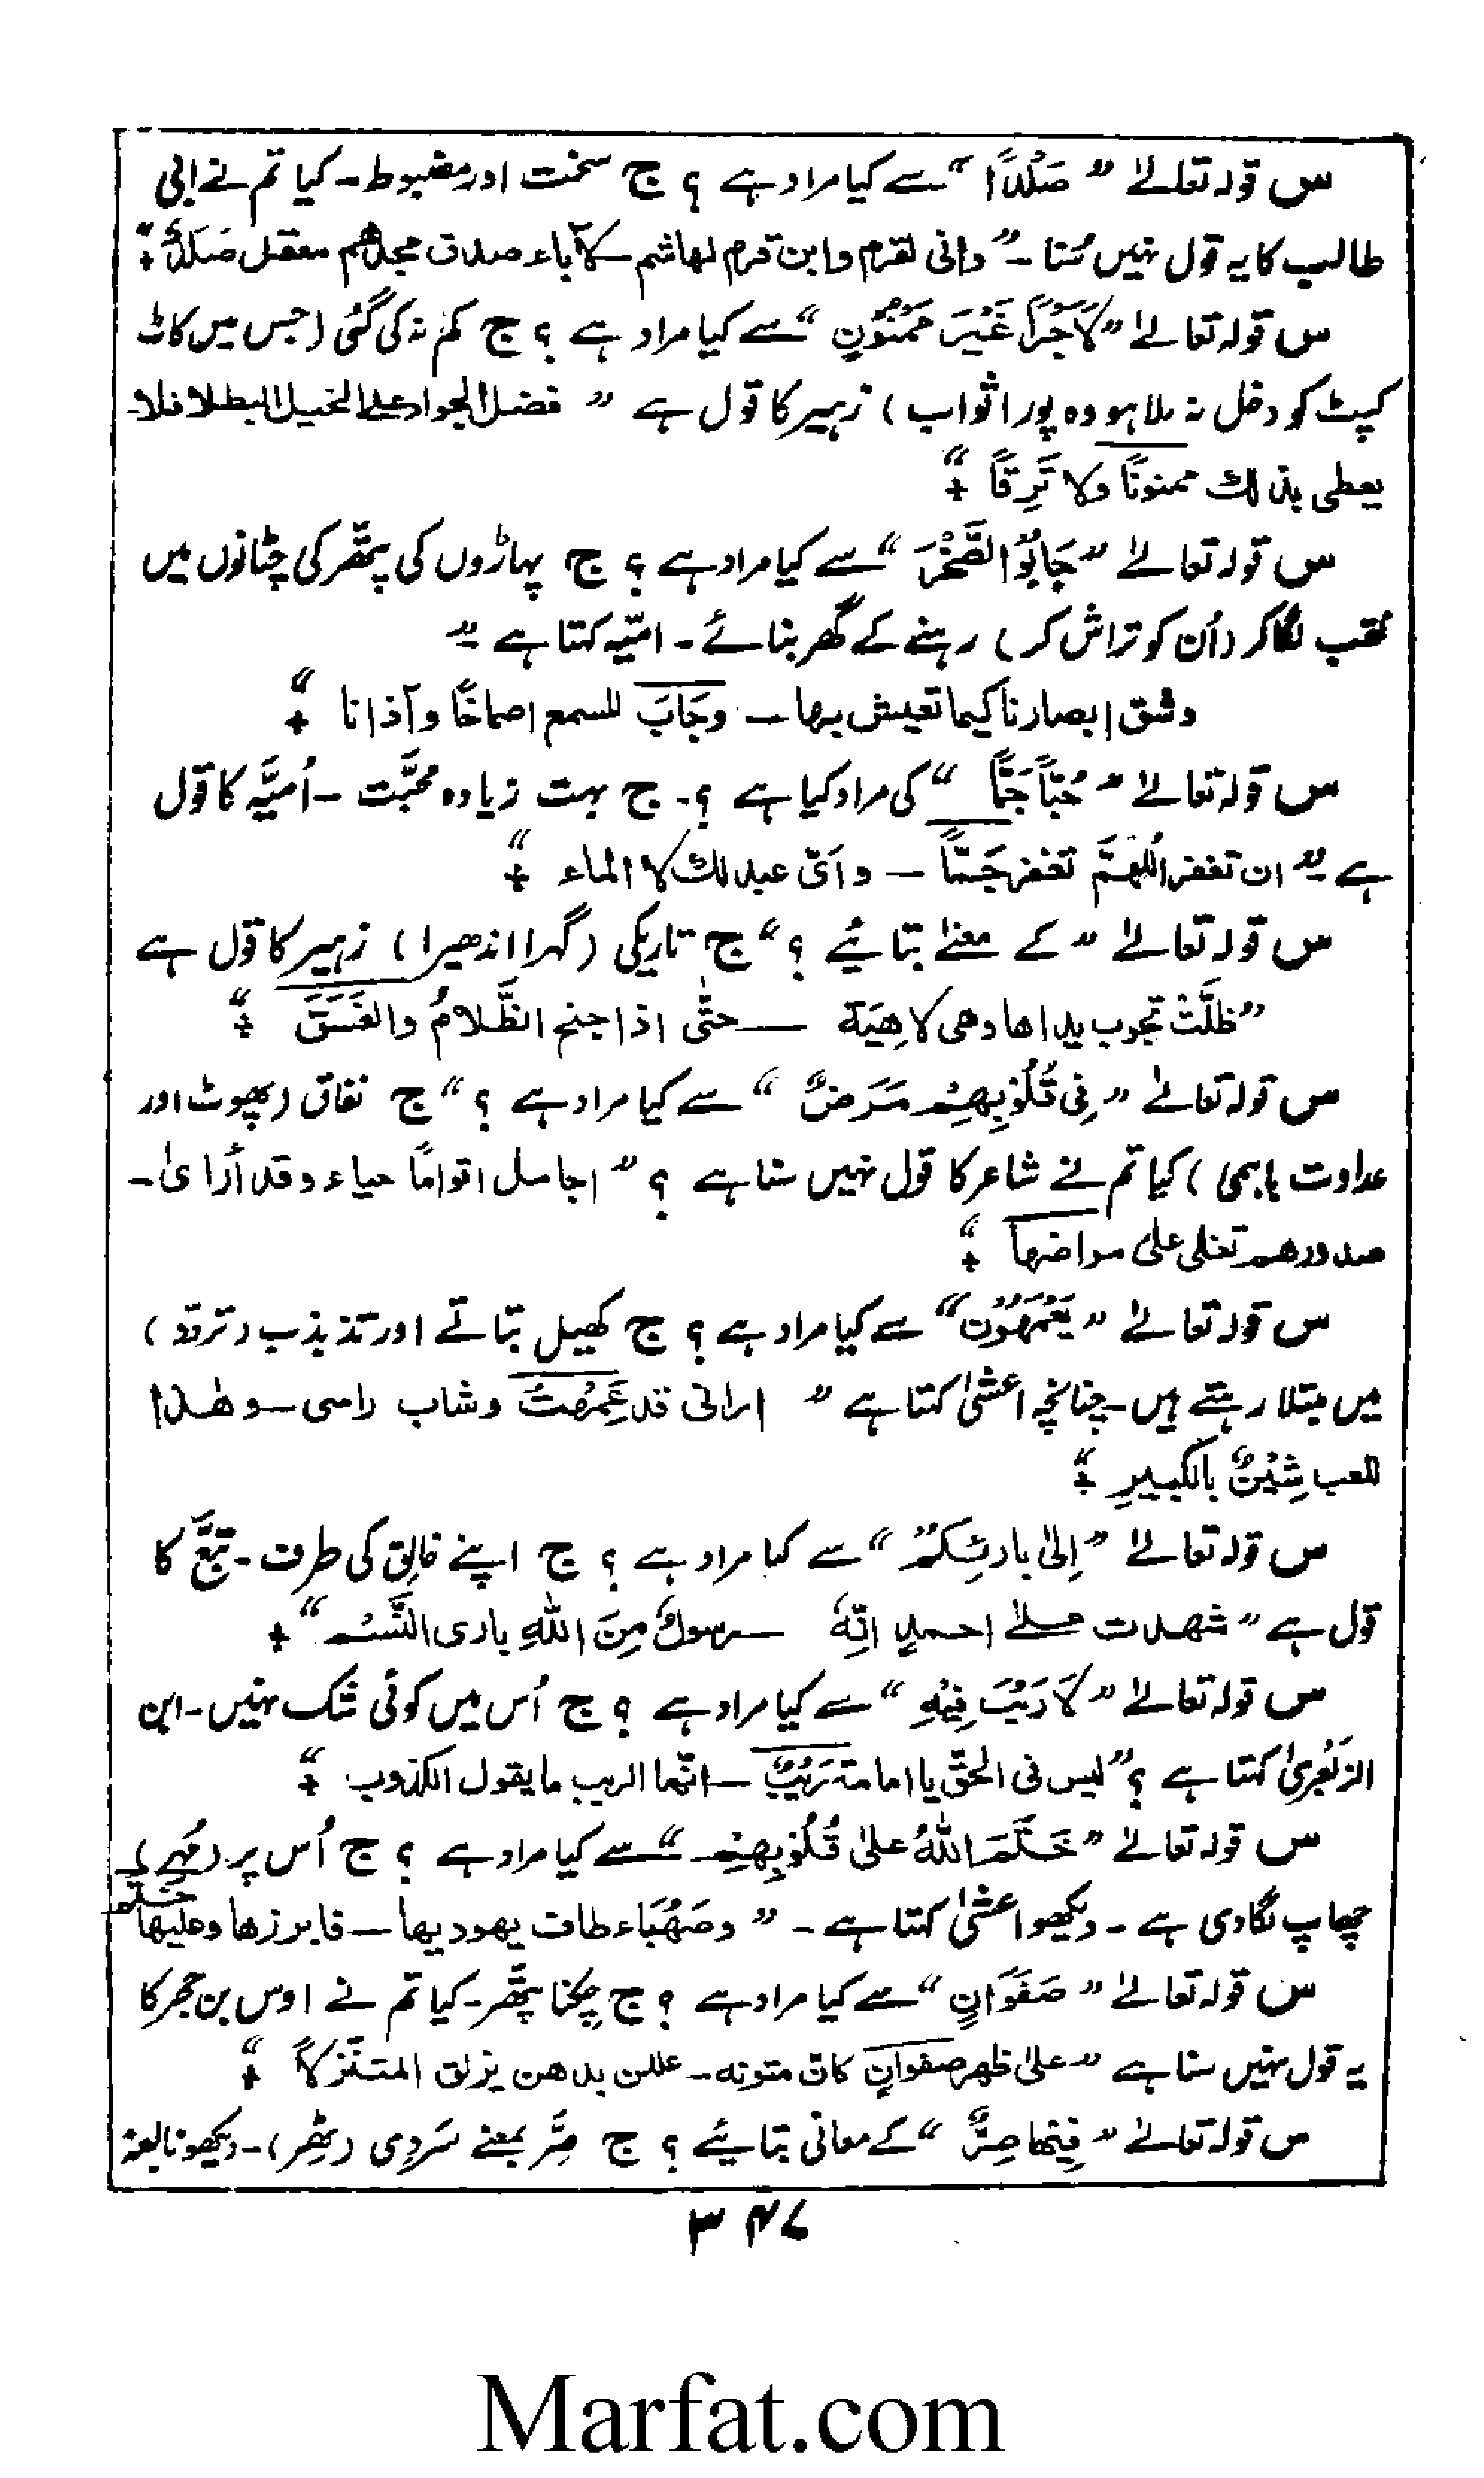 س قولہ تعالےٰ " صَلْدًا " سے کیا مراد ہے ؟ ج سخت اور مضبوط۔ کیا تم نے ابی
طالب کا یہ قول نہیں سُنا ۔" وانی لقرم وابن قرم لھاشم لآباء صدق مجدھم معقل صَلَدٌ "
س قولہ تعالےٰ " لَاَجْرًا غَیْرَ مَمْنُوْنٍ " سے کیا مراد ہے ؟ ج کم نہ کی گئی (جس میں کاٹ
کپٹ کو دخل نہ ملا ہو وہ پورا ثواب) زہیر کا قول ہے " فضل الجواد علے الخیل البطلا فلا۔
یعطی بذلك ممنونًا ولا نَزِقًا "
س قولہ تعالےٰ " جَابُوْا الصَّخْرَ " سے کیا مراد ہے ؟ ج پہاڑوں کی پتھر کی چٹانوں میں
نقب لگا کر (اُن کو تراش کر) رہنے کے گھر بنائے ۔ امیّہ کہتا ہے "
وشق ابصارنا کیما تعیش بھا — وجَابَ للسمع اصماخًا وآذانا "
س قولہ تعالےٰ " حُبًّا جَمًّا " کی مراد کیا ہے ؟۔ ج بہت زیادہ محبَّت ۔ اُمیَّہ کا قول
ہے " ان تغفر اللّٰھمَّ تغفر جَمًّا — و اَیّ عبد لك لا الماء "
س قولہ تعالےٰ " کے معنے بتائیے ؟ " ج تاریکی (گہرا اندھیرا) زہیر کا قول ہے
" ظلَّتْ تجوب یداھا وھی لاھِیَة — حتّٰی اذا جنح الظَّلامُ والغَسَقَ "
س قولہ تعالےٰ " فِی قُلُوْبِھِمْ مَرَضٌ " سے کیا مراد ہے ؟ " ج نفاق (پھوٹ اور
عداوت باہمی) کیا تم نے شاعر کا قول نہیں سنا ہے ؟ " اجامل اقوامًا حیاء وقد اُراٰی۔
صدورھم تغلی علی مراضھا "
س قولہ تعالےٰ " یَعْمَھُوْن " سے کیا مراد ہے ؟ ج کھیل بتاتے اور تذبذب (تردّد)
میں مبتلا رہتے ہیں۔ چنانچہ اعشٰی کہتا ہے " ارانی قد عَمِھْتُ وشاب راسی — وھٰذا
للعب شِیْنٌ بالکبیرِ "
س قولہ تعالےٰ " اِلیٰ بارئِکُمْ " سے کیا مراد ہے ؟ ج اپنے خالِق کی طرف ۔ تبَّع کا
قول ہے " شھدت علےٰ احمدٍ انّهٗ — رسولٌ مِنَ اللّٰهِ باری النَّسْم "
س قولہ تعالےٰ " لَا رَیْبَ فِیْهِ " سے کیا مراد ہے ؟ ج اُس میں کوئی شک نہیں۔ ابن
الزبَعْریٰ کہتا ہے ؟ " لیس فی الحقّ یا امامة رَیْبٌ — انّما الریب ما یقول الکذوب "
س قولہ تعالےٰ " خَتَمَ اللّٰهُ علیٰ قُلُوْبِھِمْ " سے کیا مراد ہے ؟ ج اُس پر (مُہر)
چھاپ لگادی ہے ۔ دیکھو اعشٰی کہتا ہے ۔ " وصَھْبَاء طاف یھودیھا — فابرزھا وعلیھا ختم
س قولہ تعالےٰ " صَفْوَانٍ " سے کیا مراد ہے ؟ ج چکنا پتھّر۔ کیا تم نے اوس بن حجر کا
یہ قول نہیں سنا ہے " علیٰ ظھر صفوانٍ کان متونه ۔ عللن بدھن یزلق المتنَزلاً "
س قولہ تعالےٰ " فِیْھَا صِرٌّ " کے معانی بتائیے ؟ ج صِرَّ بمعنے سَردی (ٹھِر)۔ دیکھو نابغہ
۳۴۷
Marfat.com